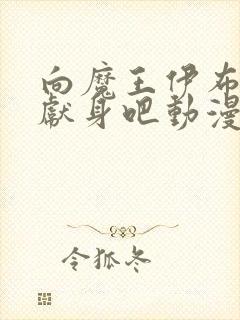 向魔王伊布
獻身吧動漫
令狐冬